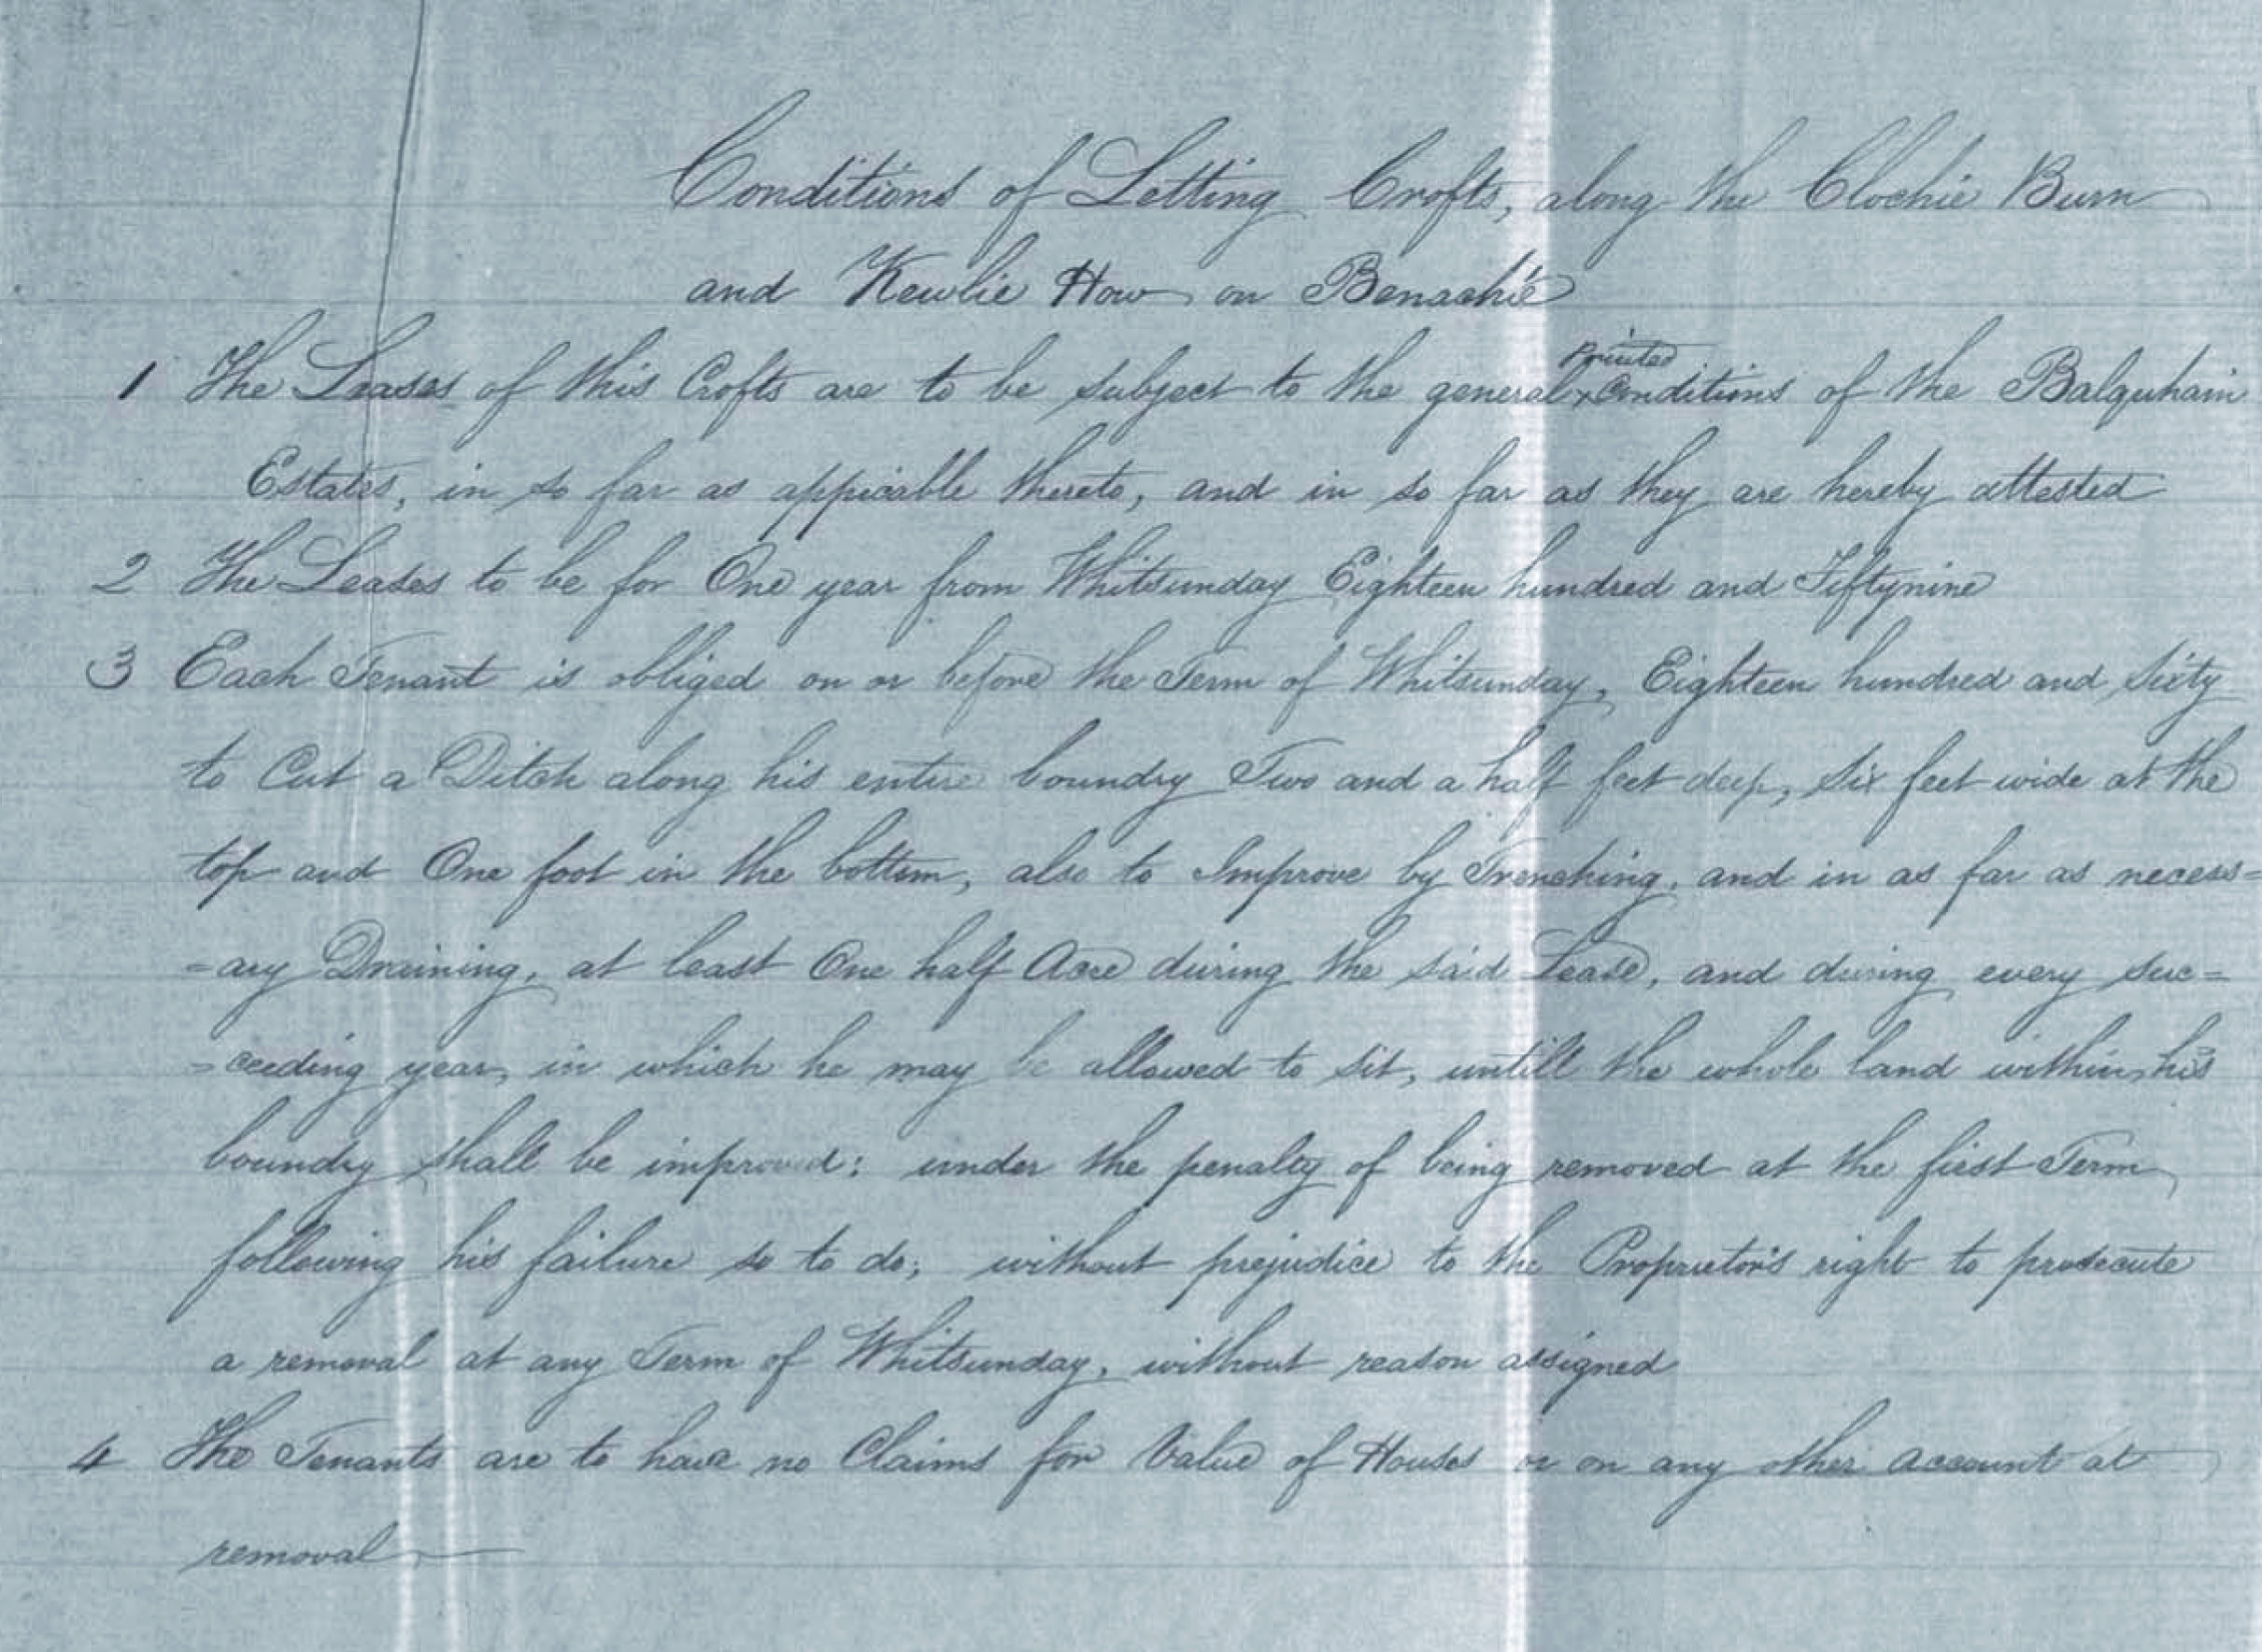 Conditions of Letting Crofts, along the Clochie Burn
and Kewlie How on Benachie
Printed
1 The Leases of this Crofts are to be subject to the general x Conditions of the Balquhain
Estates, in so far as appicable thereto, and in so far as they are hereby attested
2 The Leases to be for One year from Whitsunday Eighteen hundred and Fiftynine
3 Each Tenant is obliged on or before the Term of Whitsunday, Eighteen hundred and Sixty
to Cut a Ditch along his entire boundry Two and a half feet deep, Six feet wide at the
top and One foot in the bottom, also to Improve by Trenching, and in as far as necess=
=ary Draining, at least One half Acre during the said Lease, and during every suc=
=ceeding year, in which he may be allowed to sit, untill the whole land within his
boundry shall be improved: under the penalty of being removed at the first Term
following his failure so to do; without prejudice to the Proprietor's right to prosecute
a removal at any Term of Whitsunday, without reason assigned
4 The Tenants are to have no Claims for Value of Houses or on any other account at
removal